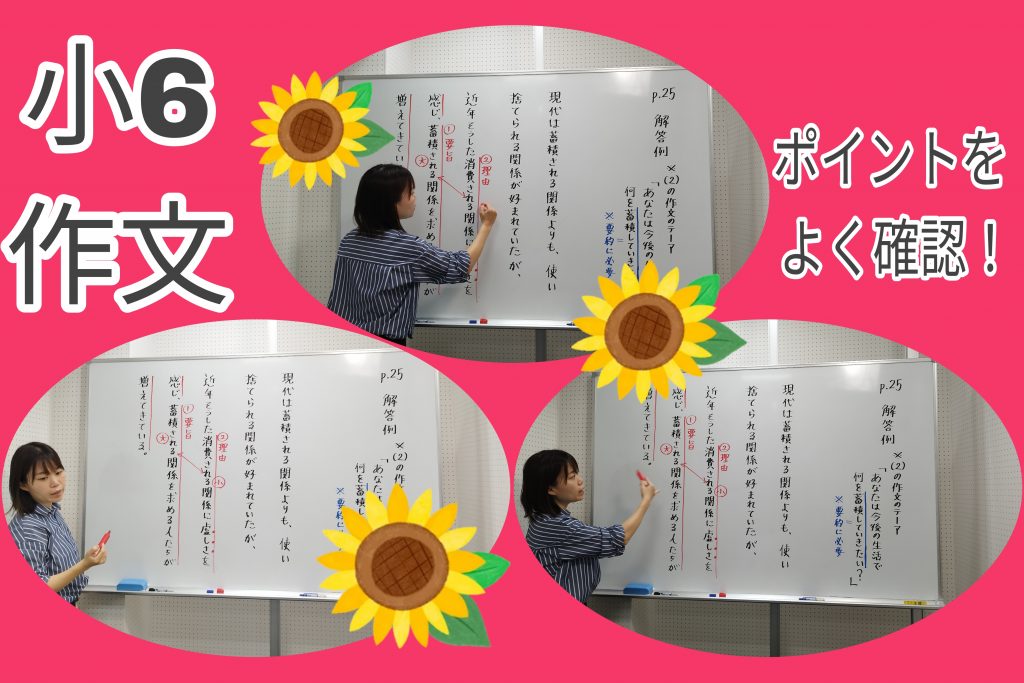 小6
作文
ポイントを
よく確認！
p.25 解答例
※(2)の作文のテーマ
「あなたは今後の
何を蓄積していき
※要約に必要
現代は蓄積される関係よりも、使い
捨てられる関係が好まれていたが、
②理由
近年そうした消費される関係に を
①要旨 大
感じ、蓄積される関係を求め が
増えてきてい
p.25 解答例
※(2)の作
「あなた
何を蓄
※要約
現代は蓄積される関係よりも、使い
捨てられる関係が好まれていたが、
②理由 小
近年そうした消費される関係に虚しさを
①要旨 大
感じ、蓄積される関係を求める人たちが
増えてきている。
p.25 解答例
※(2)の作文のテーマ
「あなたは今後の生活で
何を蓄積していきたい?」
※要約に必要
現代は蓄積される関係よりも、使い
捨てられる関係が好まれていたが、
②理由 小
近年そうした消費される関係に虚しさを
①要旨 大
感じ、蓄積される関係を求める人たちが
増えてきている。